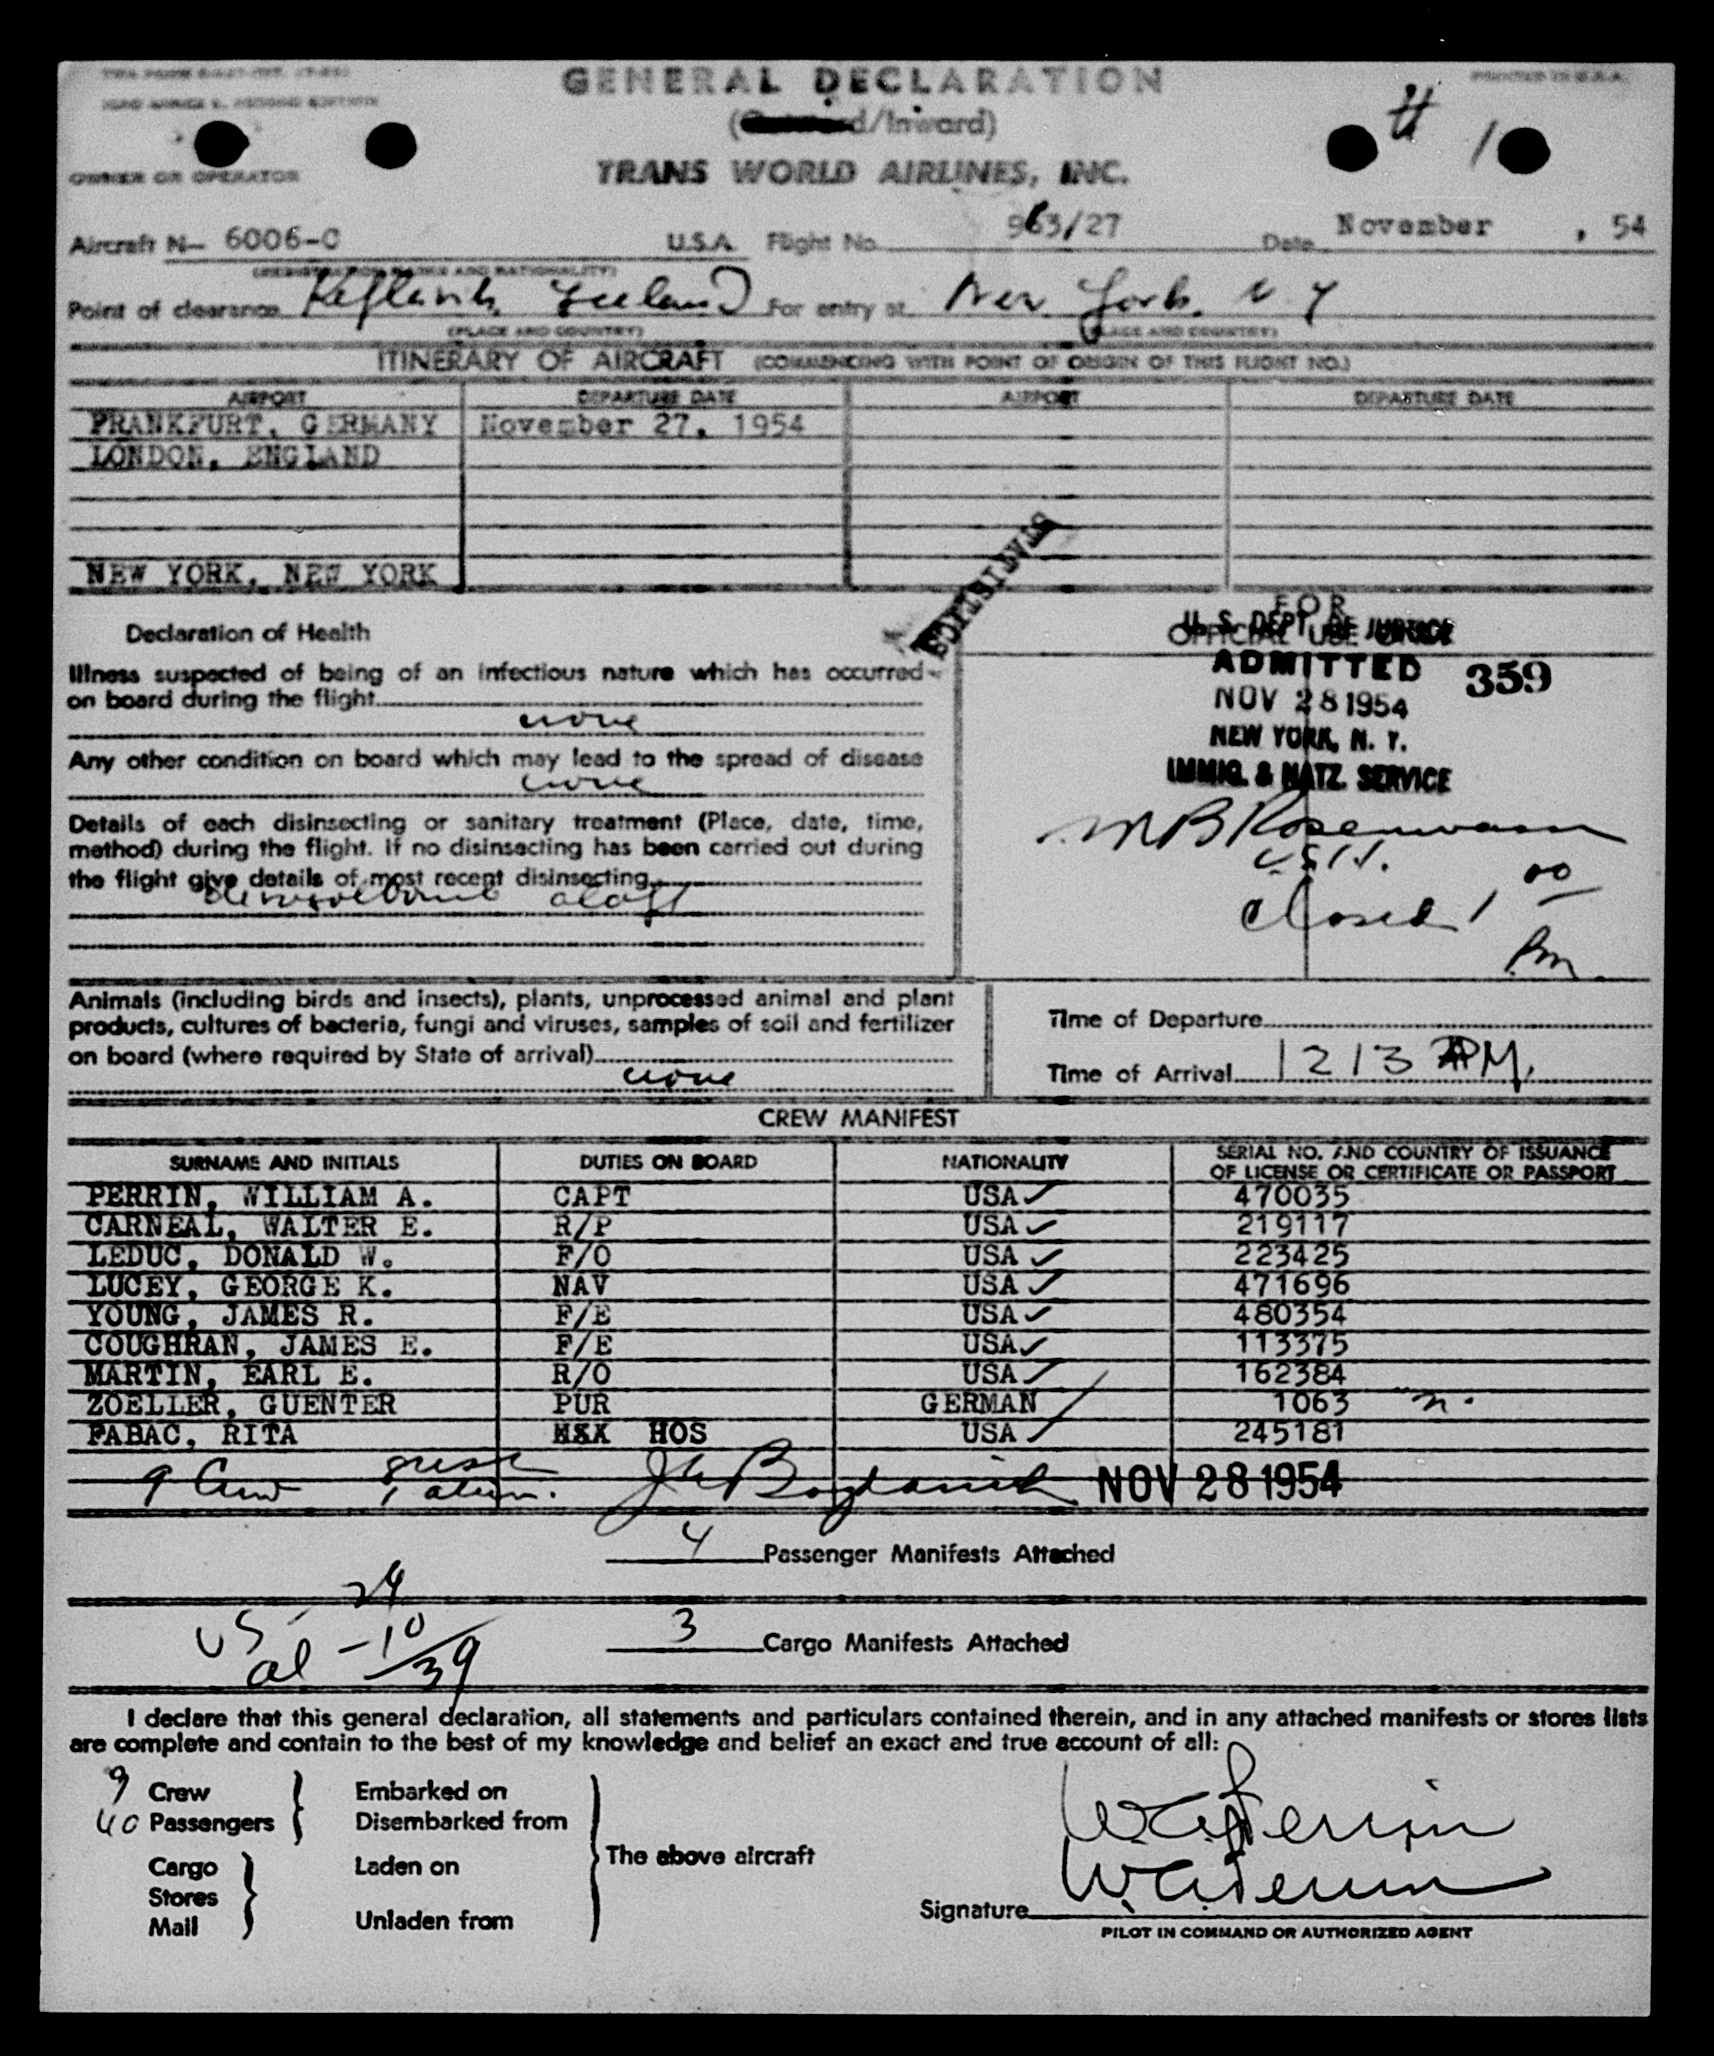 GENERAL DECLARATION
(/Inward)
PRINTED IN U.S.A.
# 1
OWNER OR OPERATOR
TRANS WORLD AIRLINES, INC.
Aircraft N— 6006-C U.S.A. Flight No. 963/27 Date November , 54
(REGISTRATION MARKS AND NATIONALITY)
Point of clearance Keflavik, Iceland For entry at New York, N Y
(PLACE AND COUNTRY) (PLACE AND COUNTRY)
ITINERARY OF AIRCRAFT (COMMENCING WITH POINT OF ORIGIN OF THIS FLIGHT NO.)
AIRPORT DEPARTURE DATE AIRPORT DEPARTURE DATE
FRANKFURT, GERMANY November 27, 1954
LONDON, ENGLAND
NEW YORK, NEW YORK
STATISTICS
Declaration of Health
Illness suspected of being of an infectious nature which has occurred
on board during the flight
none
Any other condition on board which may lead to the spread of disease
none
Details of each disinsecting or sanitary treatment (Place, date, time,
method) during the flight. If no disinsecting has been carried out during
the flight give details of most recent disinsecting
aloft
FOR
OFFICIAL USE
U. S. DEPT. OF JUSTICE
ADMITTED 359
NOV 28 1954
NEW YORK, N. Y.
IMMIG. & NATZ. SERVICE
closed 1 00
Pm
Animals (including birds and insects), plants, unprocessed animal and plant
products, cultures of bacteria, fungi and viruses, samples of soil and fertilizer
on board (where required by State of arrival)
none
Time of Departure
Time of Arrival 1213 PM.
CREW MANIFEST
SURNAME AND INITIALS DUTIES ON BOARD NATIONALITY SERIAL NO. AND COUNTRY OF ISSUANCE
OF LICENSE OR CERTIFICATE OR PASSPORT
PERRIN, WILLIAM A. CAPT USA 470035
CARNEAL, WALTER E. R/P USA 219117
LEDUC, DONALD W. F/O USA 223425
LUCEY, GEORGE K. NAV USA 471696
YOUNG, JAMES R. F/E USA 480354
COUGHRAN, JAMES E. F/E USA 113375
MARTIN, EARL E. R/O USA 162384
ZOELLER, GUENTER PUR GERMAN 1063 n.
FABAC, RITA HOS USA 245181
9 Crew 1 alien. NOV 28 1954
4 Passenger Manifests Attached
US - 29
al - 10
39
3 Cargo Manifests Attached
I declare that this general declaration, all statements and particulars contained therein, and in any attached manifests or stores lists
are complete and contain to the best of my knowledge and belief an exact and true account of all:
9 Crew
40 Passengers
Cargo
Stores
Mail
Embarked on
Disembarked from
Laden on
Unladen from
The above aircraft
W.A. Perrin
Signature W.A. Perrin
PILOT IN COMMAND OR AUTHORIZED AGENT